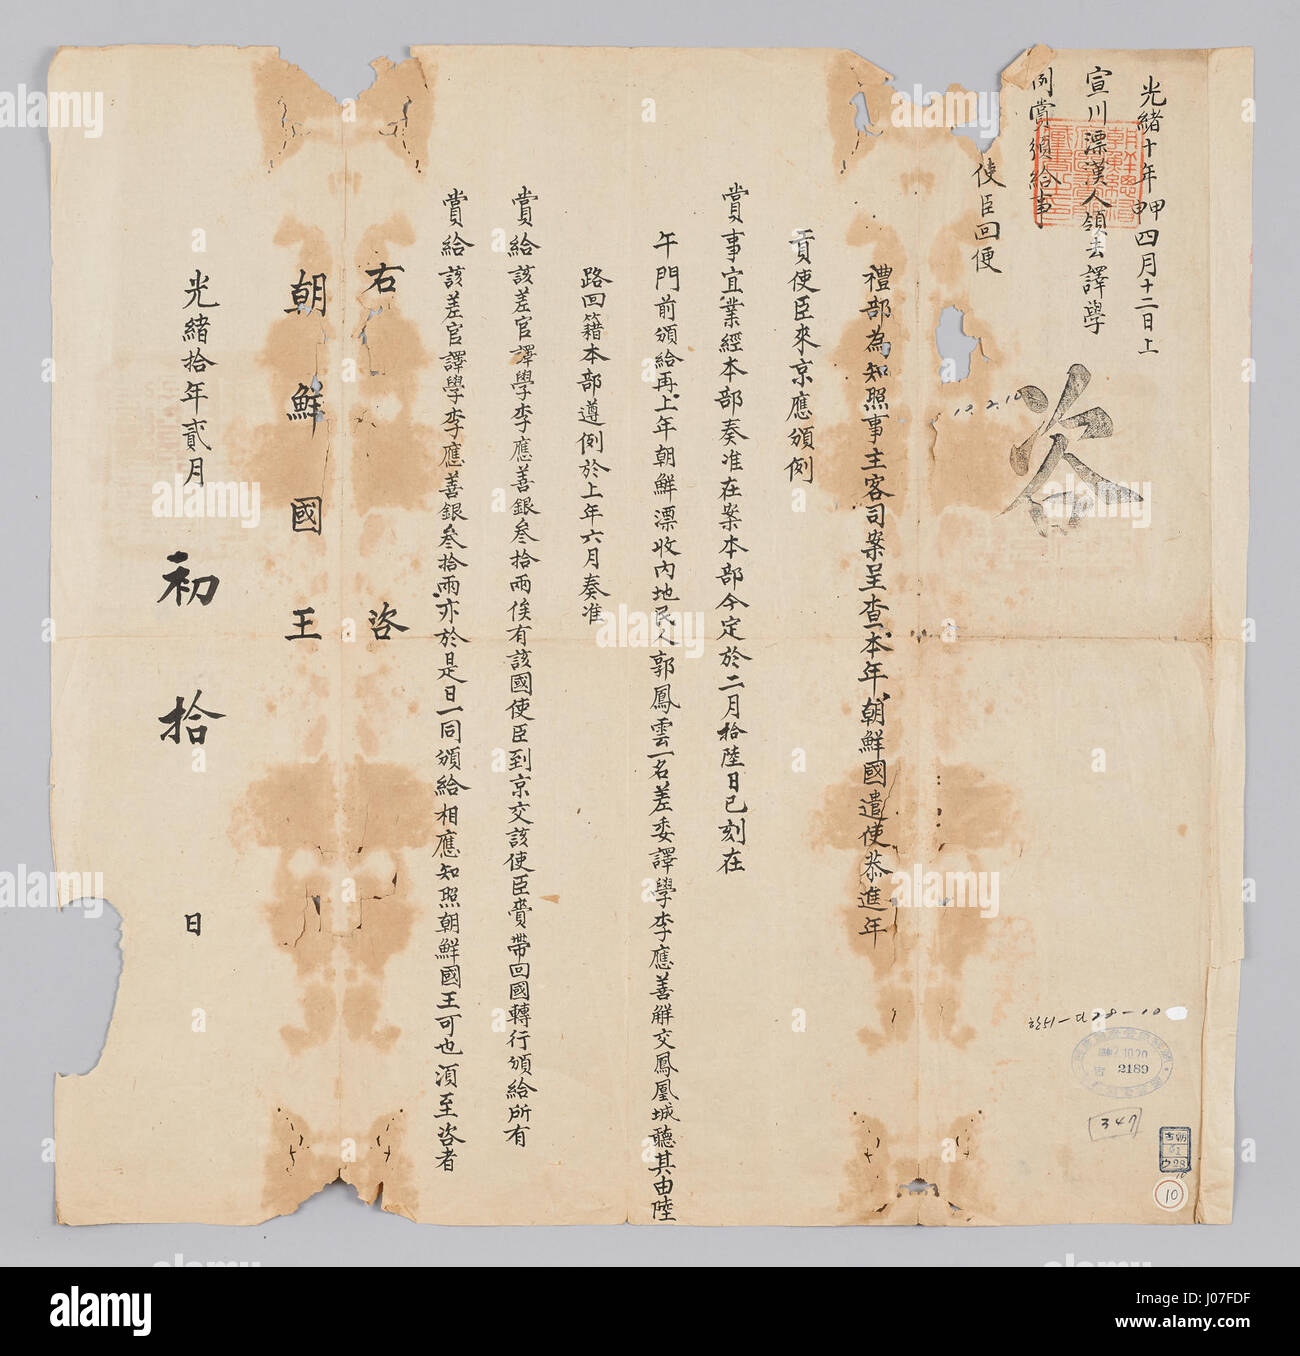 光緒十年甲申四月十二日上
宣川漂漢人領去譯學
例賞頒給事
使臣回便
咨
12.2.10
禮部為知照事主客司案呈查本年朝鮮國遣使恭進年
貢使臣來京應頒例
賞事宜業經本部奏准在案本部今定於二月拾陸日已刻在
午門前頒給再上年朝鮮漂收內地民人郭鳳雲一名差委譯學李應善解交鳳凰城聽其由陸
路回籍本部遵例於上年六月奏准
賞給該差官譯學李應善銀叄拾兩俟有該國使臣到京交該使臣賫帶回國轉行頒給所有
賞給該差官譯學李應善銀叄拾兩亦於是日一同頒給相應知照朝鮮國王可也須至咨者
右 咨
朝鮮國王
光緒拾年貳月 初拾 日
2189
347
10
alamy
Image ID: J07FDF
www.alamy.com